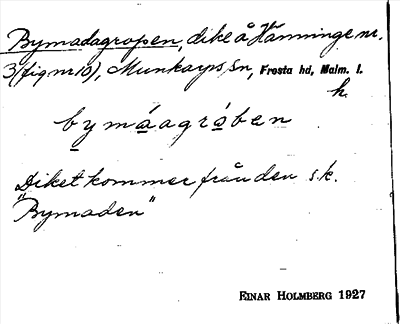 Bymadagropen, dike å Hänninge nr.
3 (fig nr 10), Munkarps sn, Frosta hd, Malm. l.
h.
bymáagrȯben
Diket kommer från den s.k.
"Bymaden"
EINAR HOLMBERG 1927